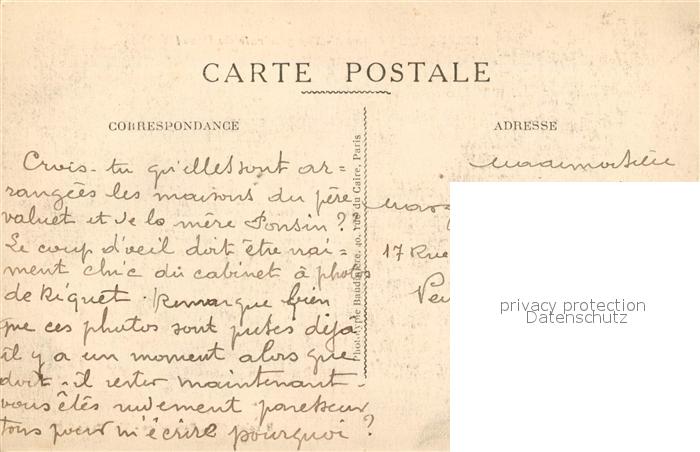 CARTE POSTALE
CORRESPONDANCE
ADRESSE
Crois-tu qu'elles sont ar=
rangées les maisons du père
valuet et de la mère Ponsin ?
Le coup d'oeil doit être rai=
ment chic du cabinet à photos
de Riquet. Remarque bien
que ces photos sont prises déjà
il y a un moment alors que
doit-il rester maintenant.
vous êtes rudement paresseux
tous pour m'écrire pourquoi ?
Phototypie Baudinière, 40, rue du Caire, Paris
Mademoiselle
17 Rue
privacy protection
Datenschutz